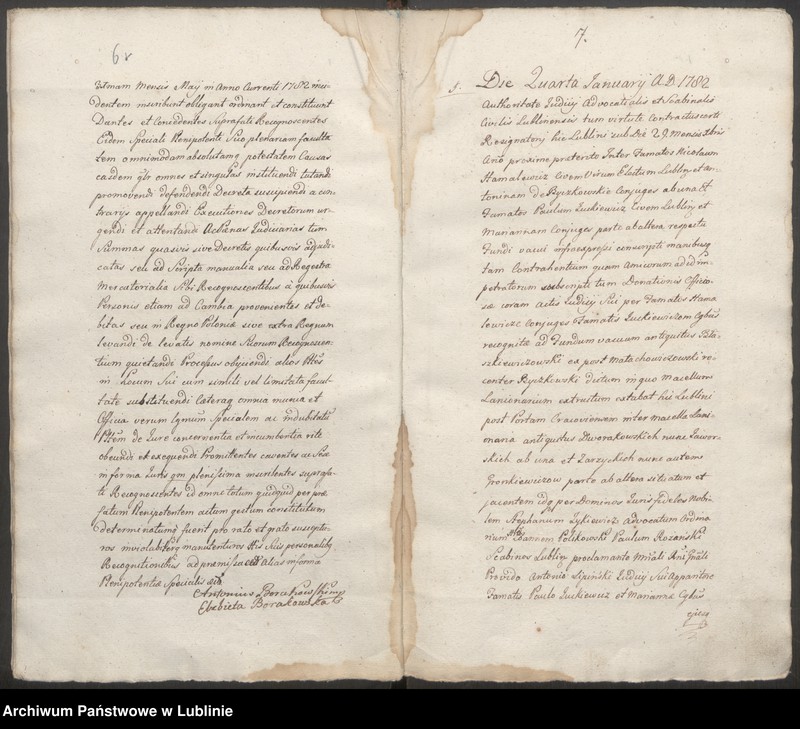 6v
mensis Maij in Anno Currenti 1782 inci-
dentem inscribunt obligant ordinant et constituunt
Dantes et Concedentes Suprafati Recognoscentes
Eidem Speciali Plenipotenti Suo plenariam faculta
tem omnimodam absolutamq potestatem Causas
easdem omnes et singulas instituendi tutandi
promovendi defendendi Decreta suscipiendi a con-
trarijs appellandi Executiones Decretorum ur-
gendi et attentandi Actiones Judiciarias tum
Summas quasvis sive Decretis quibusvis adjudi
catas seu ad Scripta manualia seu ad Regestra
Mercatorialia Sibi Recognoscentibus a quibusvis
Personis etiam ad Cambia provenientes et de-
bitas seu in Regno Poloniæ sive extra Regnum
levandi de levatis nomine Suorum Recognoscen-
tium quietandi Processus obijciendi alios
in Locum Sui cum simili vel limitata facul-
tate substituendi Cæteraq omnia munia et
Officia verum Specialem ac indubitatum
de Jure concernentia et incumbentia rite
obeundi et exequendi Promittentes caventes ac Sese
in forma Juris plenissima inscribentes suprafa-
ti Recognoscentes id omne totum quidquid per præ
fatum Plenipotentem actum gestum constitutum
determinatumq fuerit pro rato et grato suscep-
ros inviolabiterq manutenturos His Suis personalibq
Recognitionibus ad præmissa alias in forma
Plenipotentiæ Specialis
Antonius Borakowski mp
Elzbieta Borakowska
7.
Die Quarta January A D 1782
Authoritate Judicij Advocatialis et Scabinalis
Civilis Lublinensis tum virtute Contractus certi
Resignatorij hic Lublini sub Die 29 Mensis Xbris
Anno proxime præterito Inter Famatos Nicolaum
Hamalewicz Civem Virum Electum Lublinen et An-
toninam de Byszkowskie Conjuges ab una &
Famatos Paulum Luckiewicz Civem Lublinen et
Mariannam Conjuges parte ab altera respectu
Fundi vacui expressi conscripti manibusq
tam Contrahentium quam Amicorum ad id im-
petratorum subscripti tum Donationis Officio-
sæ coram Actis Judicij Sui per Famatos Hama
lewicze Conjuges Famatis Luckiewiczom
recognitæ ad Fundum vacuum antiquitus Bła-
szkiewiczowski ex post Małachowiczowski re-
center Byszkowski dictum in quo macellum
Lanionarium extructum extabat hic Lublini
post Portam Cracoviensem inter macella Lani-
onaria antiquitus Dworakowskich nunc Jawor-
skich ab una et Zarzyckich nunc autem
Gronkiewiczow parte ab altera situatum et
jacentem per Dominos Juris fideles Nobi-
lem Stephanum Łykiewicz Advocatum Ordina
rium Joannem Połkowski Paulum Rozanski
Scabinos Lublinen proclamante
Provido Antonio Lipinski Judicij Sui Apparitore
Famatis Paulo Luckiewicz et Mariannæ
ejus